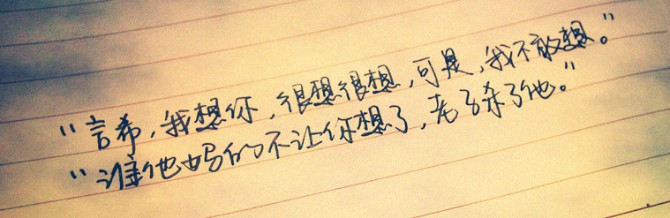 “言希，我想你，很想很想，可是，我不敢想。”
“谁他妈的不让你想了，老子杀了他。”